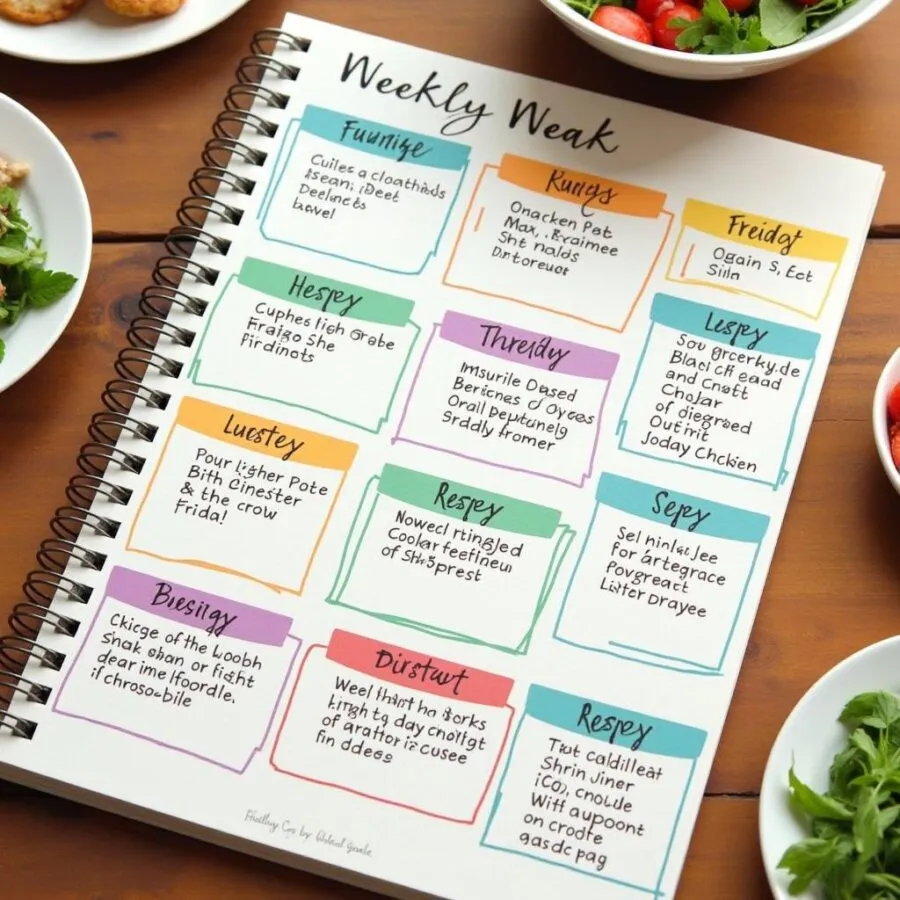 Weekly Weak
Fuunize
Cuiles a cloathids
Asean, iDeet
Deelnects
bawel
Kungs
Onacken Pet
Max, . Exaimee
Sht nalds
Dntoreuer
Freidgt
Ogain S, Eet
Siln
Hespy
Cuphes figh Grabe
Fraigo She
Firdinots
Threddy
Imsurile Dased
Bericnes of Oyces
Orall Deptunelg
Srddly fromer
Lespy
Sou grcerky.de
Blach cf eaad
and Cnaft
Chojar
of diegread
Outirit
Joday Chcken
Lucstey
Pour ligher Pote
Bith Cinester
& the crow
Frida!
Respy
Nowecl rtingled
Coolar feefineu
of Shsprest
Sepy
Sel hinlat Jee
for artegrace
Povgreact
Lister Drayee
Bresilgy
Ckicge of the Loobh
Snak shan or fight
dear ime lfoordle.
if chroso-bile
Dirstuvt
Weel thart haBorks
kirght g day choifgt
of arattor iz cusee
fin ddees
Respy
Tiut caldilleat
Shrin Jiner
iCO), cnolde
Wiff aupoont
on crodte
gasdc pag